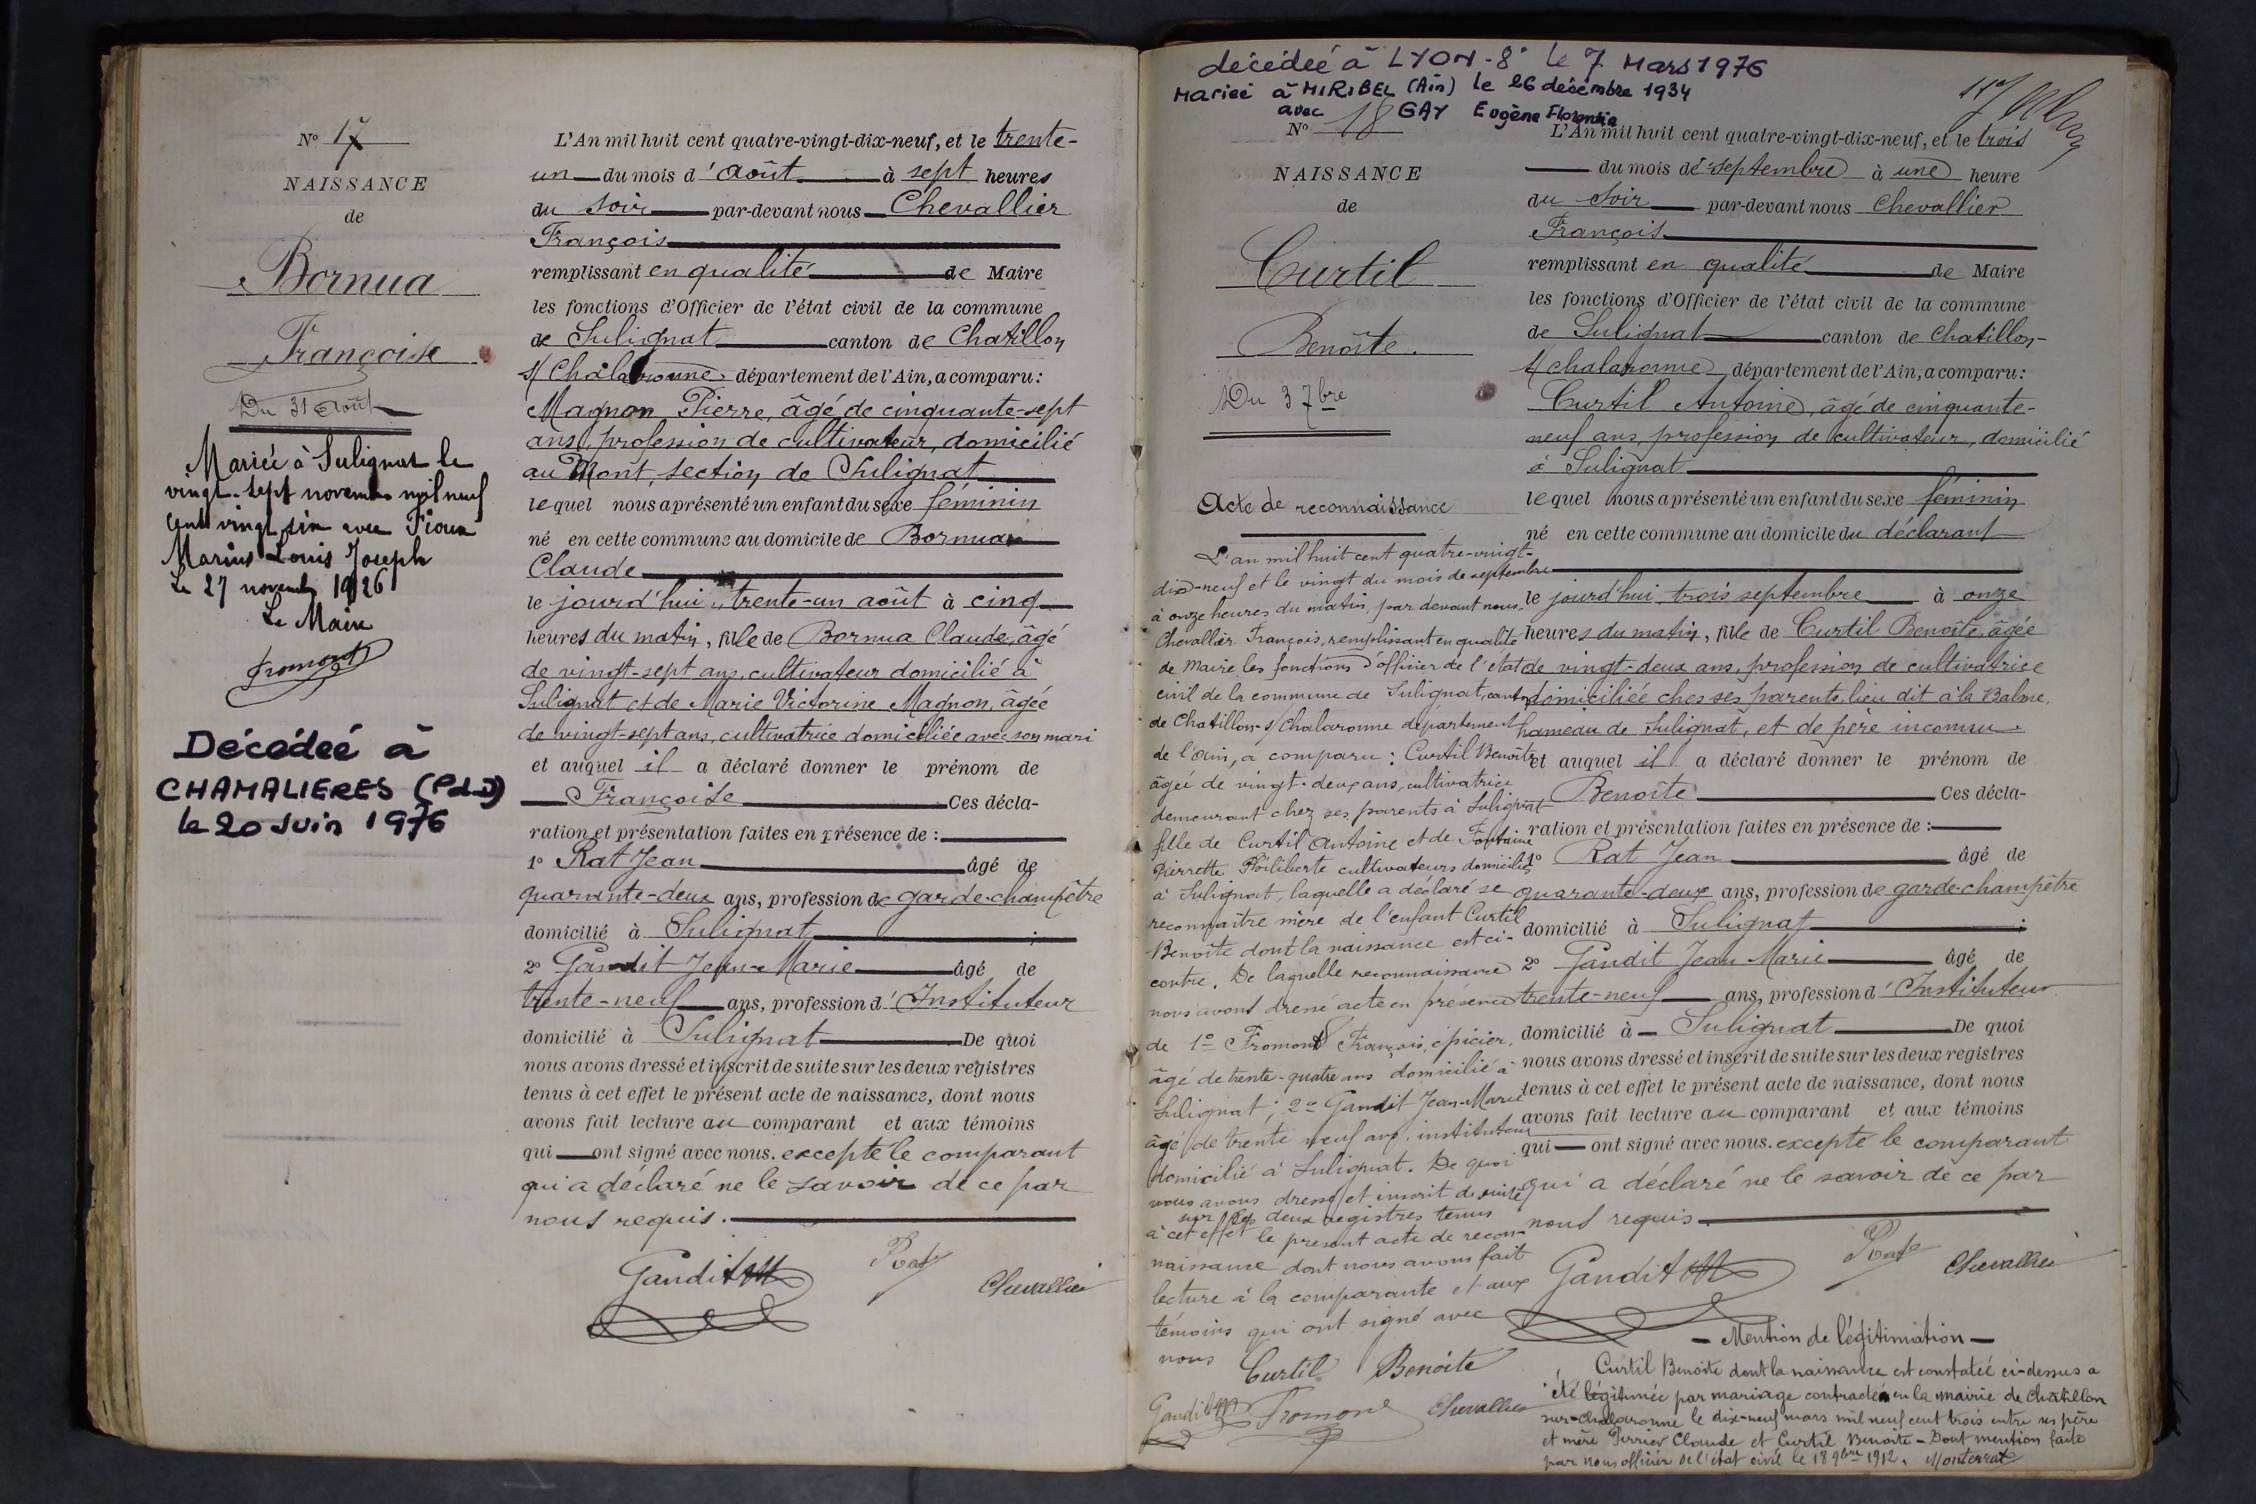 N° 17
NAISSANCE
de
Bornua
Françoise
Du 31 Août
Mariée à Sulignat le
vingt-sept novembre mil neuf
cent vingt six avec Fioux
Marius Louis Joseph
Le 27 novembre 1926
Le Maire
Fromont
Décédée à
CHAMALIERES (P.d.D)
le 20 Juin 1976
L'An mil huit cent quatre-vingt-dix-neuf, et le trente-
un du mois d'août à sept heures
du soir par-devant nous Chevallier
François
remplissant en qualité de Maire
les fonctions d'Officier de l'état civil de la commune
de Sulignat canton de Chatillon
s/ Chalaronne département de l'Ain, a comparu :
Magnon Pierre, âgé de cinquante-sept
ans, profession de cultivateur, domicilié
au Mont, section de Sulignat
lequel nous a présenté un enfant du sexe féminin
né en cette commune au domicile de Bornua
Claude
le jourd'hui, trente-un août à cinq
heures du matin, fille de Bornua Claude, âgé
de vingt-sept ans, cultivateur domicilié à
Sulignat et de Marie Victorine Magnon, âgée
de vingt-sept ans, cultivatrice domiciliée avec son mari
et auquel il a déclaré donner le prénom de
Françoise Ces décla-
ration et présentation faites en présence de :
1° Rat Jean âgé de
quarante-deux ans, profession de garde-champêtre
domicilié à Sulignat ;
2° Gandit Jean-Marie âgé de
trente-neuf ans, profession d'Instituteur
domicilié à Sulignat De quoi
nous avons dressé et inscrit de suite sur les deux registres
tenus à cet effet le présent acte de naissance, dont nous
avons fait lecture au comparant et aux témoins
qui ont signé avec nous. excepté le comparant
qui a déclaré ne le savoir de ce par
nous requis.
Gandit Rat Chevallier
décédée à LYON-8° le 7 Mars 1976
Mariée à MIRIBEL (Ain) le 26 décembre 1934
avec GAY Eugène Florentin
N° 18
NAISSANCE
de
Curtil
Benoîte.
Du 3 7bre
Acte de reconnaissance
L'an mil huit cent quatre-vingt-
dix-neuf et le vingt du mois de septembre
à onze heures du matin, par devant nous
Chevallier François, remplissant en qualité
de Maire les fonctions d'officier de l'état
civil de la commune de Sulignat, canton
de Chatillon-s/Chalaronne département
de l'Ain, a comparu : Curtil Benoîte
âgée de vingt-deux ans, cultivatrice
demeurant chez ses parents à Sulignat
fille de Curtil Antoine et de Fontaine
Pierrette Philiberte cultivateurs domiciliés
à Sulignat, laquelle a déclaré se
reconnaître mère de l'enfant Curtil
Benoîte dont la naissance est ci-
contre. De laquelle reconnaissance
nous avons dressé acte en présence
de 1° Fromont François, épicier,
âgé de trente-quatre ans domicilié à
Sulignat ; 2° Gandit Jean-Marie
âgé de trente neuf ans, instituteur
domicilié à Sulignat. De quoi
nous avons dressé et inscrit de suite
sur les deux registres tenus
à cet effet le présent acte de recon-
naissance dont nous avons fait
lecture à la comparante et aux
témoins qui ont signé avec
nous Curtil Benoîte
Gandit Fromont Chevallier
L'An mil huit cent quatre-vingt-dix-neuf, et le trois
du mois de septembre à une heure
du soir par-devant nous Chevallier
François
remplissant en qualité de Maire
les fonctions d'Officier de l'état civil de la commune
de Sulignat canton de Chatillon-
s/ chalaronne département de l'Ain, a comparu :
Curtil Antoine, âgé de cinquante-
neuf ans, profession de cultivateur, domicilié
à Sulignat
lequel nous a présenté un enfant du sexe féminin
né en cette commune au domicile du déclarant
le jourd'hui trois septembre à onze
heures du matin, fille de Curtil Benoîte, âgée
de vingt-deux ans, profession de cultivatrice
domiciliée chez ses parents, lieu dit à la Balme,
hameau de Sulignat, et de père inconnu.
et auquel il a déclaré donner le prénom de
Benoîte Ces décla-
ration et présentation faites en présence de :
1° Rat Jean âgé de
quarante-deux ans, profession de garde-champêtre
domicilié à Sulignat ;
2° Gandit Jean Marie âgé de
trente-neuf ans, profession d'Instituteur
domicilié à Sulignat De quoi
nous avons dressé et inscrit de suite sur les deux registres
tenus à cet effet le présent acte de naissance, dont nous
avons fait lecture au comparant et aux témoins
qui ont signé avec nous. excepté le comparant
qui a déclaré ne le savoir de ce par
nous requis.
Gandit Rat Chevallier
Mention de légitimation
Curtil Benoîte dont la naissance est constatée ci-dessus a
été légitimée par mariage contracté en la mairie de Chatillon
sur-Chalaronne le dix-neuf mars mil neuf cent trois entre ses père
et mère Perrier Claude et Curtil Benoîte - Dont mention faite
par nous officier de l'état civil le 18 9bre 1912. Monterrat